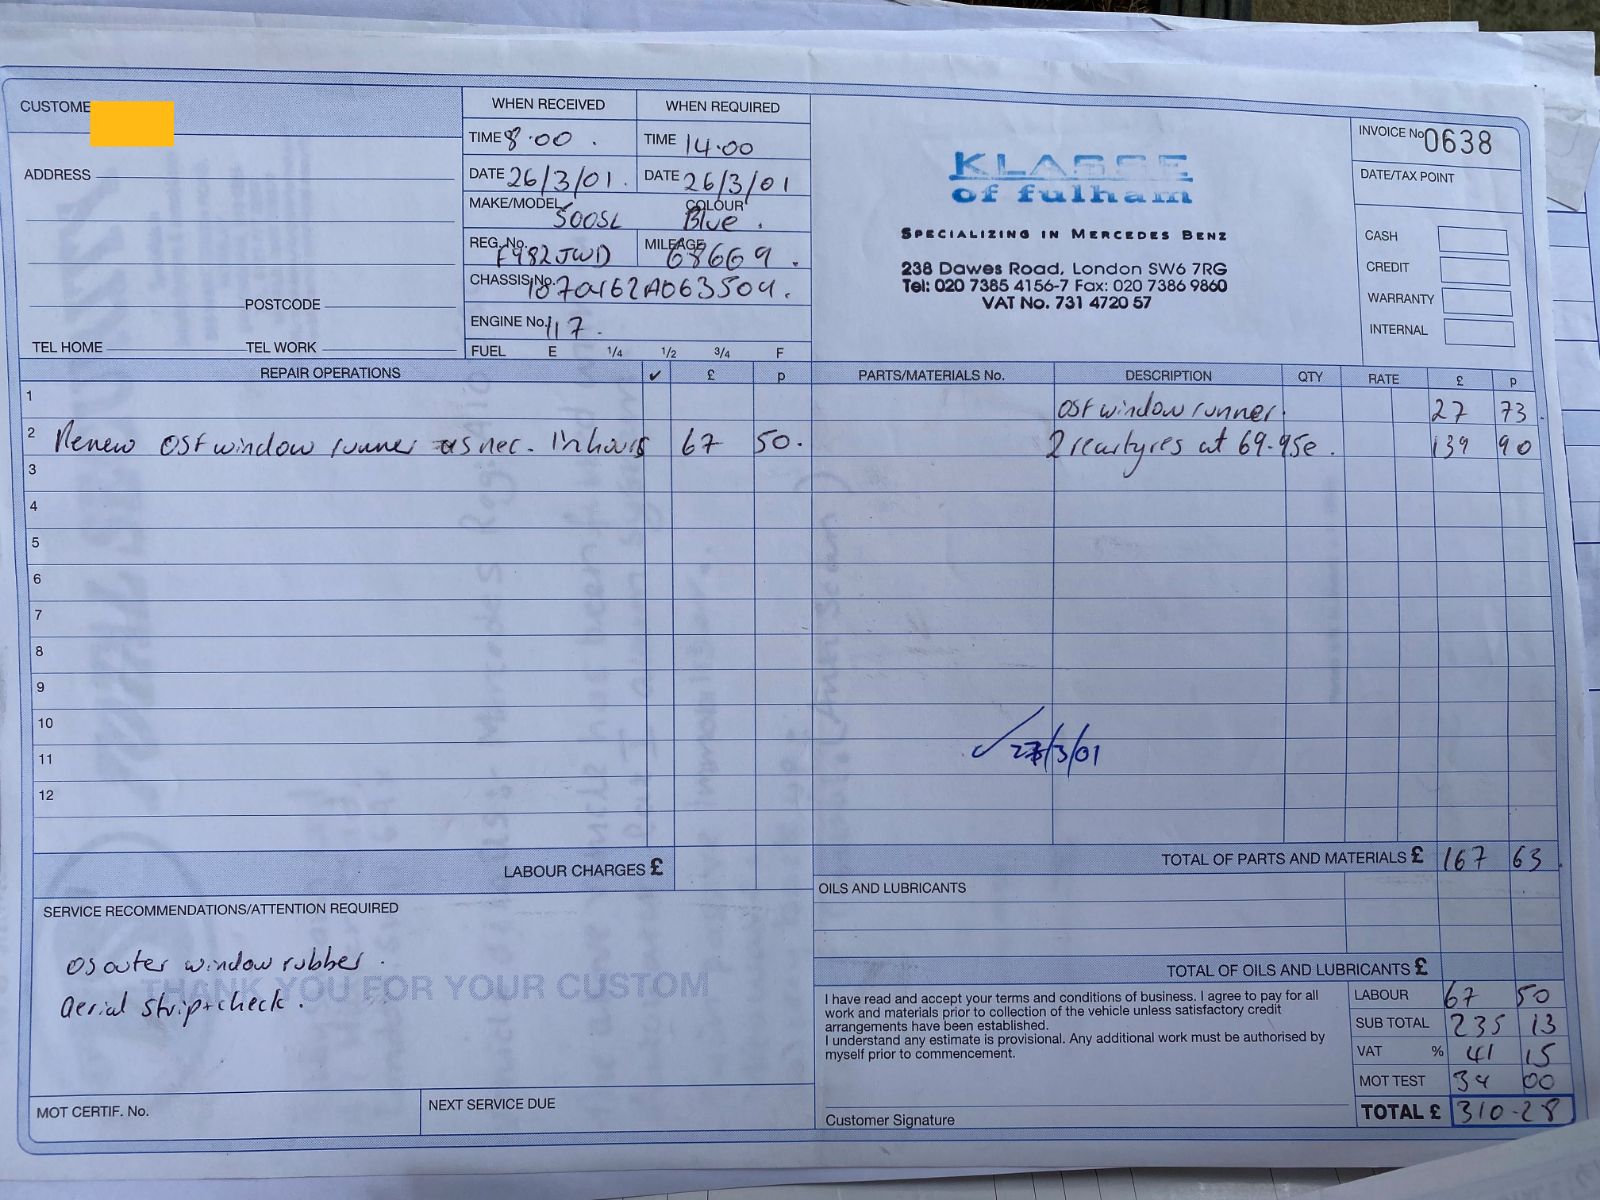 CUSTOME
ADDRESS
POSTCODE
TEL HOME TEL WORK
WHEN RECEIVED WHEN REQUIRED
TIME 8.00. TIME 14.00
DATE 26/3/01. DATE 26/3/01
MAKE/MODEL 500SL COLOUR Blue.
REG. No. F982JWD MILEAGE 68669.
CHASSIS No.
ENGINE No. 117.
FUEL E 1/4 1/2 3/4 F
KLASSE
of fulham
SPECIALIZING IN MERCEDES BENZ
238 Dawes Road, London SW6 7RG
Tel: 020 7385 4156-7 Fax: 020 7386 9860
VAT No. 731 4720 57
INVOICE No 0638
DATE/TAX POINT
CASH
CREDIT
WARRANTY
INTERNAL
REPAIR OPERATIONS ✓ £ p
1
2 Renew OSF window runner as nec. 67 50.
3
4
5
6
7
8
9
10
11
12
LABOUR CHARGES £
PARTS/MATERIALS No. DESCRIPTION QTY RATE £ p
OSF window runner. 27 73.
2 rear tyres at 69.95e. 139 90
✓ 27/3/01
TOTAL OF PARTS AND MATERIALS £ 167 63.
OILS AND LUBRICANTS
TOTAL OF OILS AND LUBRICANTS £
SERVICE RECOMMENDATIONS/ATTENTION REQUIRED
OS outer window rubber.
THANK YOU FOR YOUR CUSTOM
Aerial strip+check.
MOT CERTIF. No. NEXT SERVICE DUE
I have read and accept your terms and conditions of business. I agree to pay for all
work and materials prior to collection of the vehicle unless satisfactory credit
arrangements have been established.
I understand any estimate is provisional. Any additional work must be authorised by
myself prior to commencement.
Customer Signature
LABOUR 67 50
SUB TOTAL 235 13
VAT % 41 15
MOT TEST 34 00
TOTAL £ 310-28